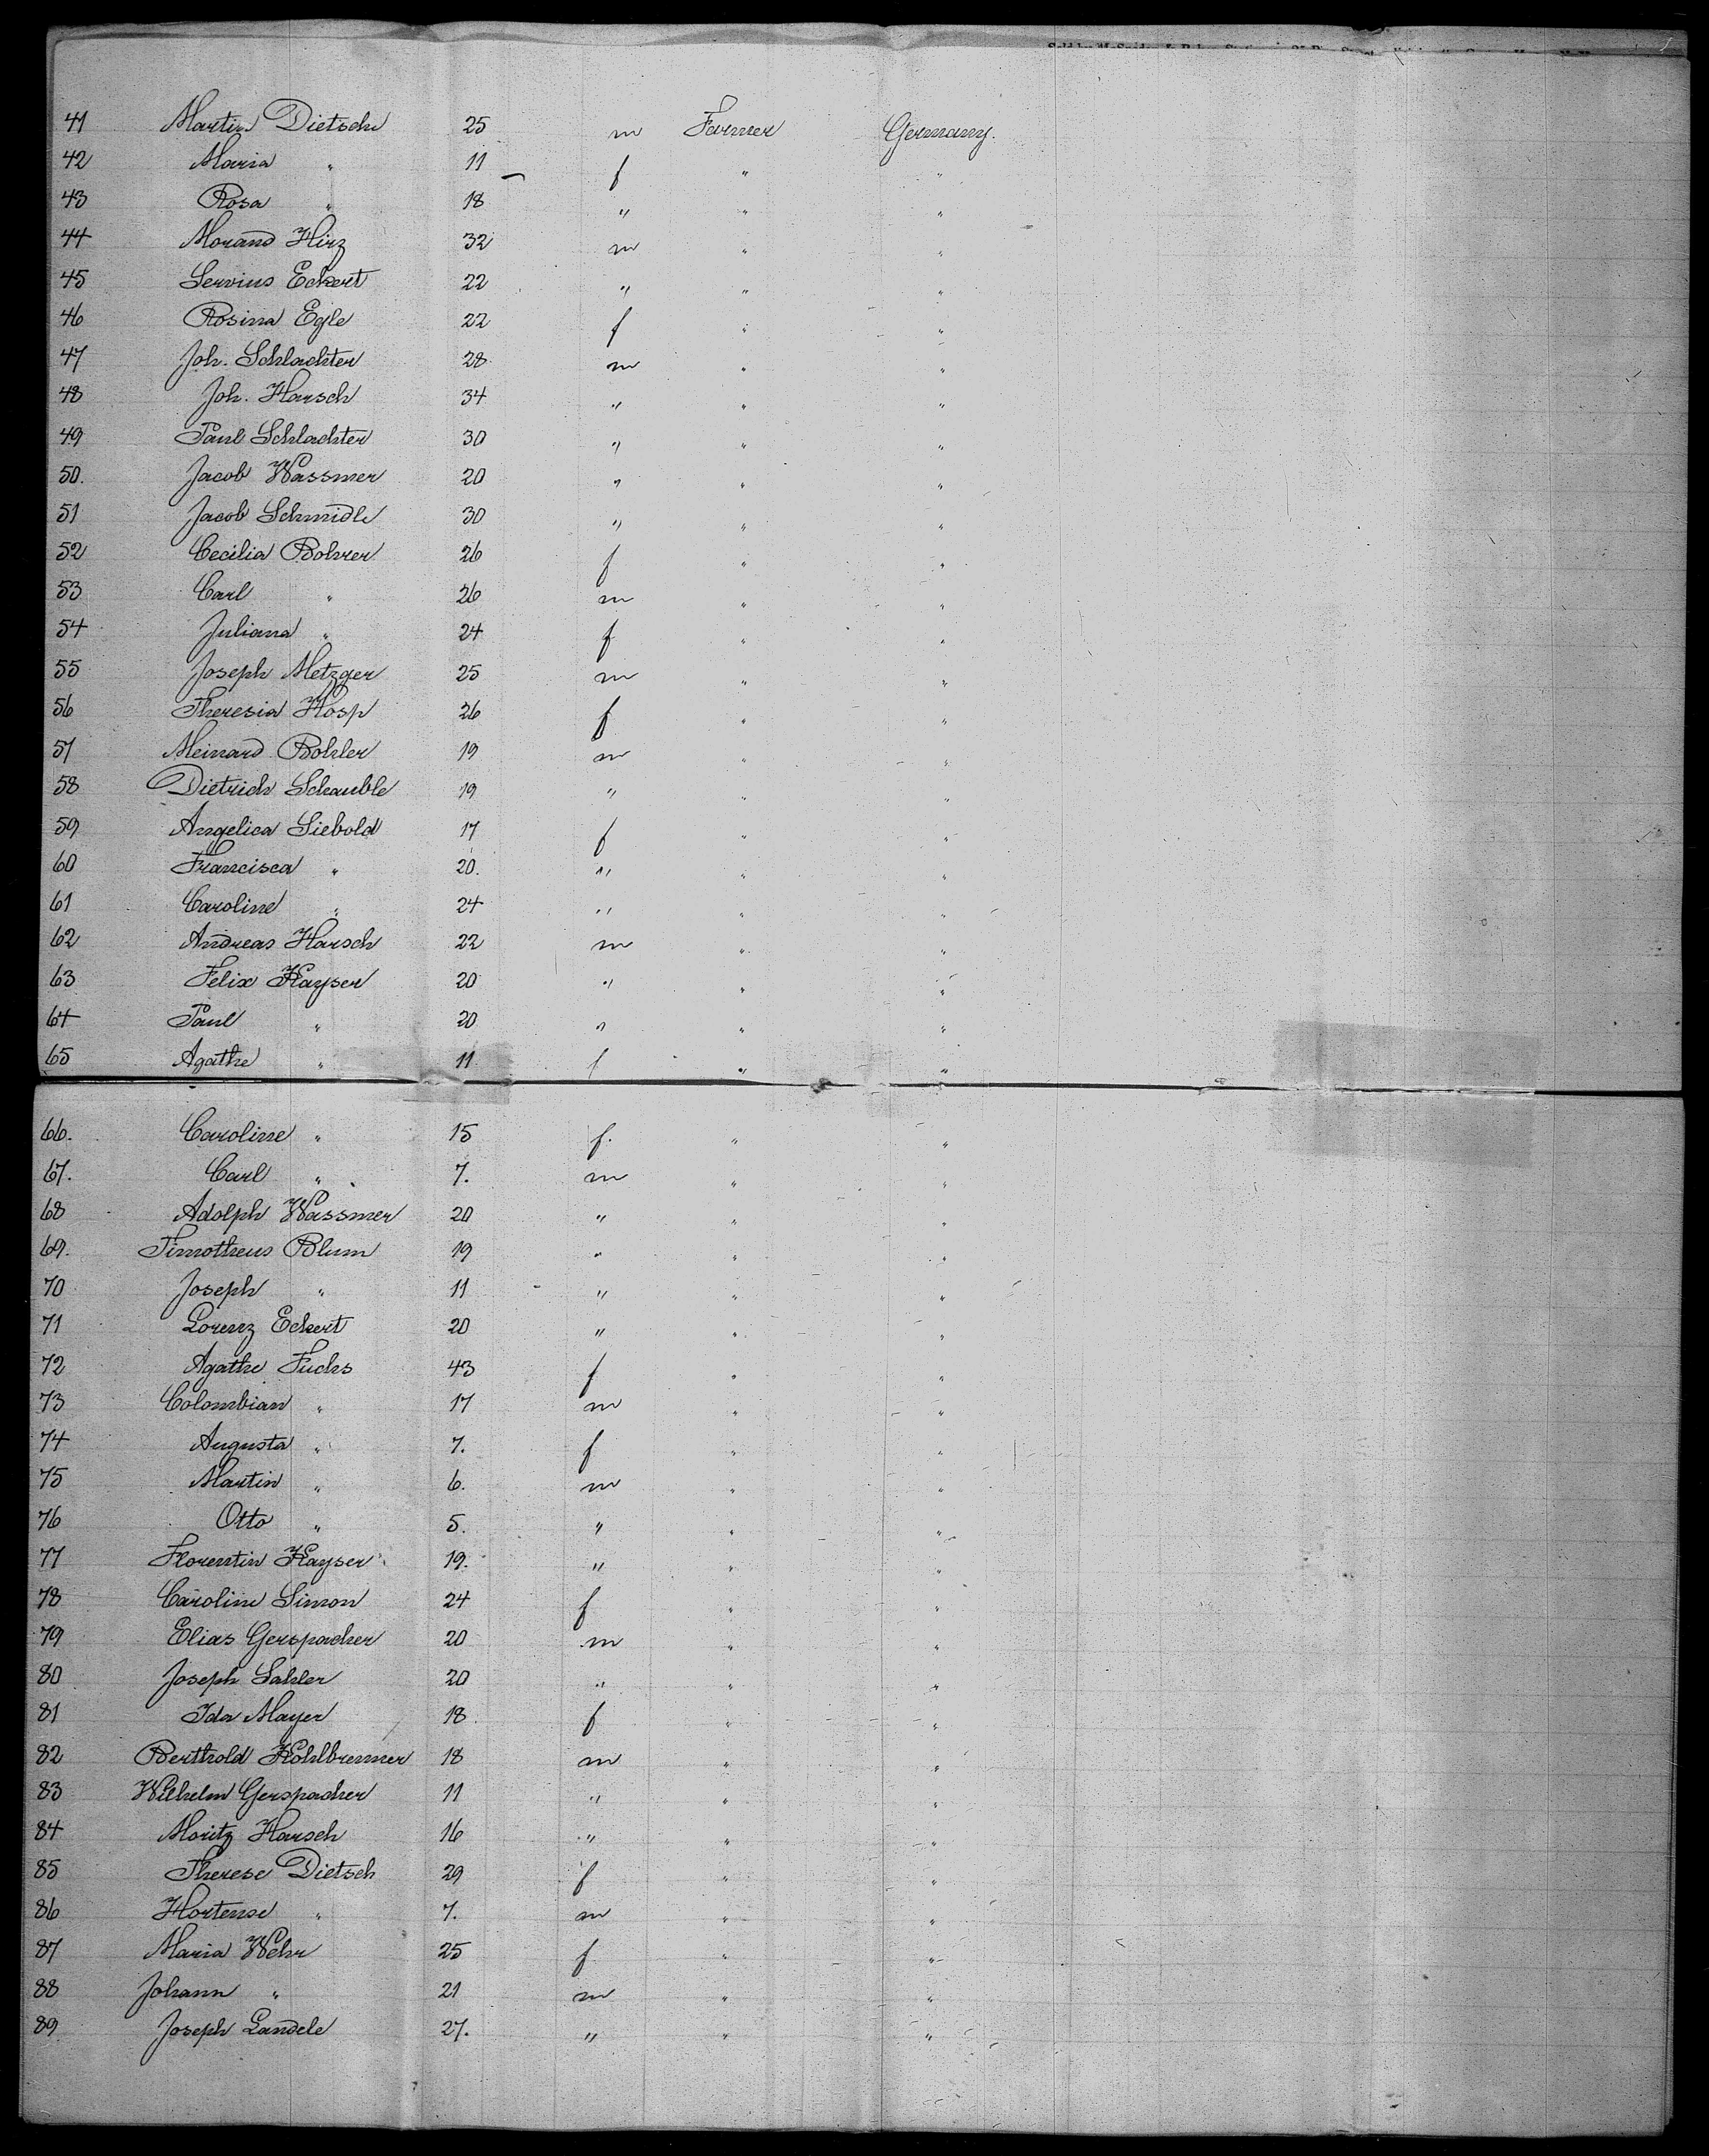 41 Martin Dietsche 25 m Farmer Germany.
42 Maria " 11 f " "
43 Rosa " 18 " " "
44 Morand Hirz 32 m " "
45 Servius Eckert 22 " " "
46 Rosina Egle 22 f " "
47 Joh. Schlachter 28 m " "
48 Joh. Harsch 34 " " "
49 Paul Schlachter 30 " " "
50. Jacob Wassmer 20 " " "
51 Jacob Schmidle 30 " " "
52 Cecilia Bohrer 26 f " "
53 Carl " 26 m " "
54 Juliana " 24 f " "
55 Joseph Metzger 25 m " "
56 Theresia Hosp 26 f " "
57 Meinard Bohler 19 m " "
58 Dietrich Schauble 19 " " "
59 Angelica Siebold 17 f " "
60 Francisca " 20. " " "
61 Caroline " 24 " " "
62 Andreas Harsch 22 m " "
63 Felix Kayser 20 " " "
64 Paul " 20 " " "
65 Agathe " 11. f " "
66. Caroline " 15 f. " "
67. Carl " 7. m " "
68 Adolph Wassmer 20 " " "
69. Timotheus Blum 19 " " "
70 Joseph " 11 " " "
71 Lorenz Eckert 20 " " "
72 Agathe Fuchs 43 f " "
73 Colombian " 17 m " "
74 Augusta " 7. f " "
75 Martin " 6. m " "
76 Otto " 5. " " "
77 Florentin Kayser 19. " " "
78 Caroline Simon 24 f " "
79 Elias Gerspacher 20 m " "
80 Joseph Sahler 20 " " "
81 Ida Mayer 18 f " "
82 Berthold Kohlbrenner 18 m " "
83 Wilhelm Gerspacher 11 " " "
84 Moritz Harsch 16 " " "
85 Therese Dietsch 29 f " "
86 Hortense " 7. m " "
87 Maria Wehr 25 f " "
88 Johann " 21 m " "
89 Joseph Landele 27. " " "